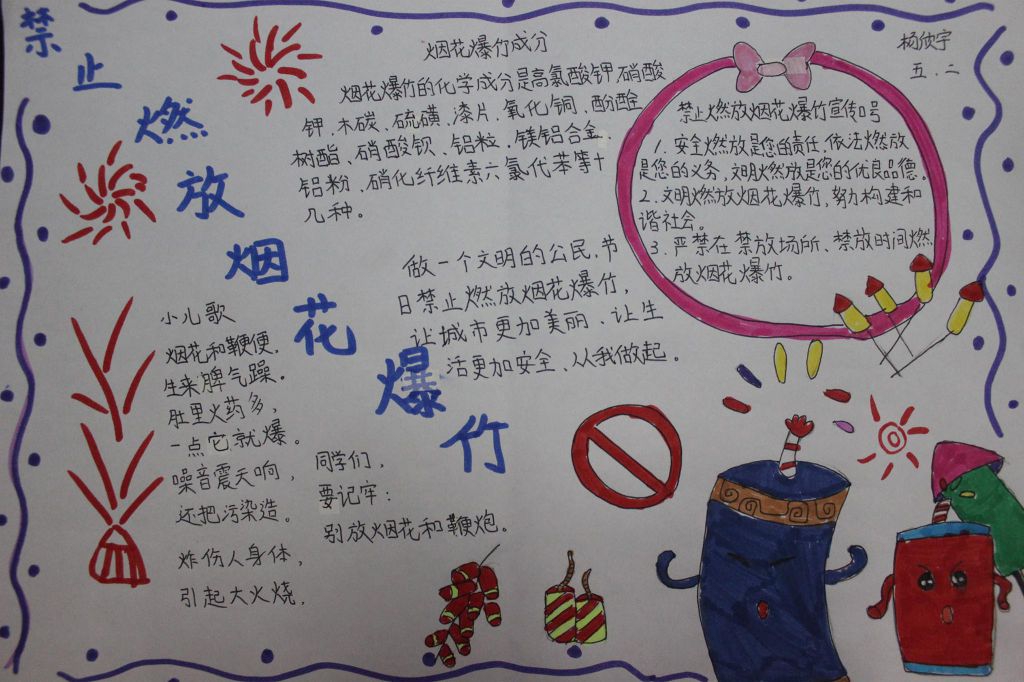 禁止燃放烟花爆竹
烟花爆竹成分
烟花爆竹的化学成分是高氯酸钾、硝酸
钾、木碳、硫磺、漆片、氧化铜、酚酫
树酯、硝酸钡、铝粒、镁铝合金
铝粉、硝化纤维素六氯代苯等十
几种。
杨欣宇
五.二
禁止燃放烟花爆竹宣传口号
1.安全燃放是您的责任,依法燃放
是您的义务,文明燃放是您的优良品德。
2.文明燃放烟花爆竹,努力构建和
谐社会。
3.严禁在禁放场所、禁放时间燃
放烟花爆竹。
做一个文明的公民,节
日禁止燃放烟花爆竹,
让城市更加美丽、让生
活更加安全、从我做起。
小儿歌
烟花和鞭便,
生来脾气躁。
肚里火药多,
一点它就爆。
噪音震天响,
还把污染造。
炸伤人身体,
引起大火烧,
同学们,
要记牢:
别放烟花和鞭炮。